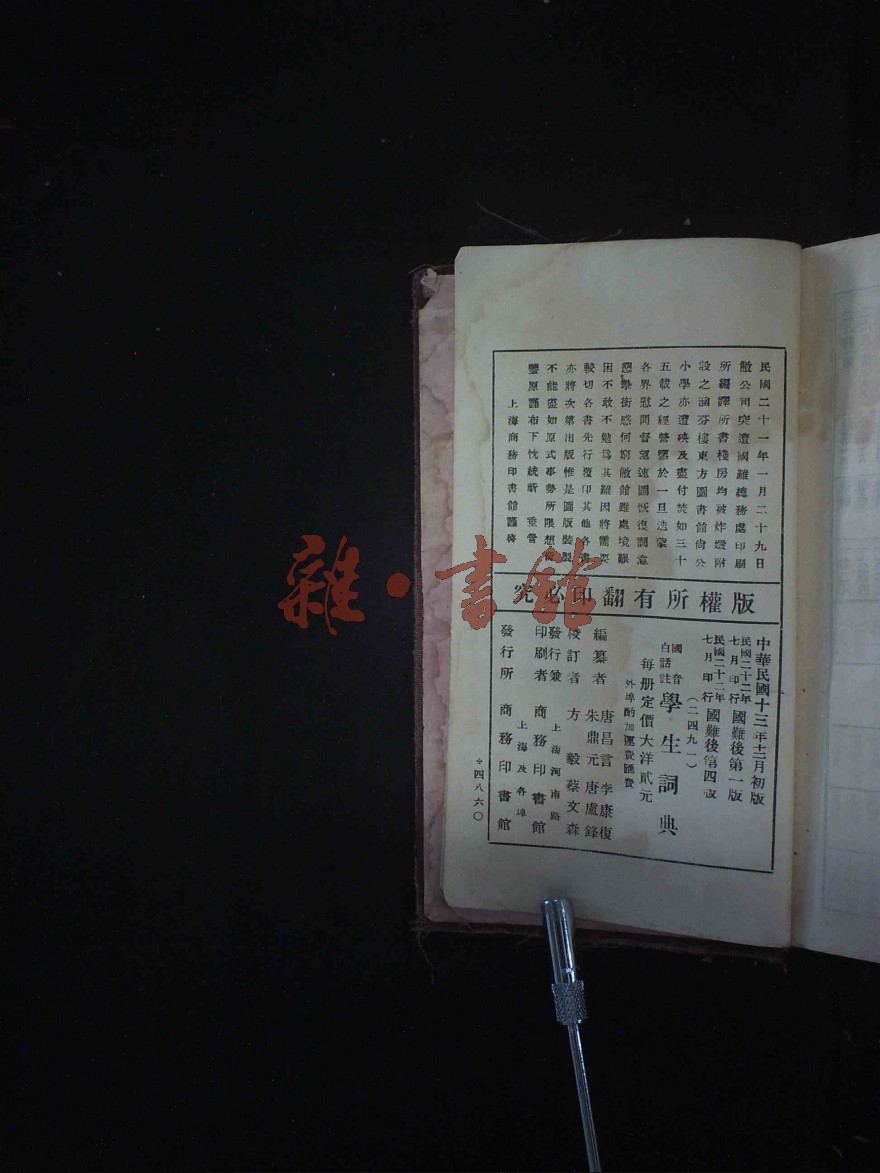 民國二十一年一月二十九日
敝公司突遭國難總務處印刷
所編譯所書棧房均被炸燬附
設之涵芬樓東方圖書館尙公
小學亦遭殃及盡付焚如三十
五載之經營隳於一旦迭蒙
各界慰問督望速圖恢復詞意
懇摯銜感何窮敝館雖處境艱
困不敢不勉爲其難因將需要
較切各書先行覆印其他各書
亦將次第出版惟是圖版裝製
不能盡如原式事勢所限想荷
鑒原謹布下忱統祈 垂詧
上海商務印書館謹啓
版權所有翻印必究
中華民國十三年十二月初版
民國二十二年七月印行 國難後第一版
民國二十二年七月印行 國難後第四版
(二四九一)
國音白話註 學生詞典
每册定價大洋貳元
外埠酌加運費匯費
編纂者 唐昌言 李康復 朱鼎元 唐盧鋒
校訂者 方毅 蔡文森
發行兼印刷者 上海河南路 商務印書館
發行所 上海及各埠 商務印書館
*四八六〇
雜·書館